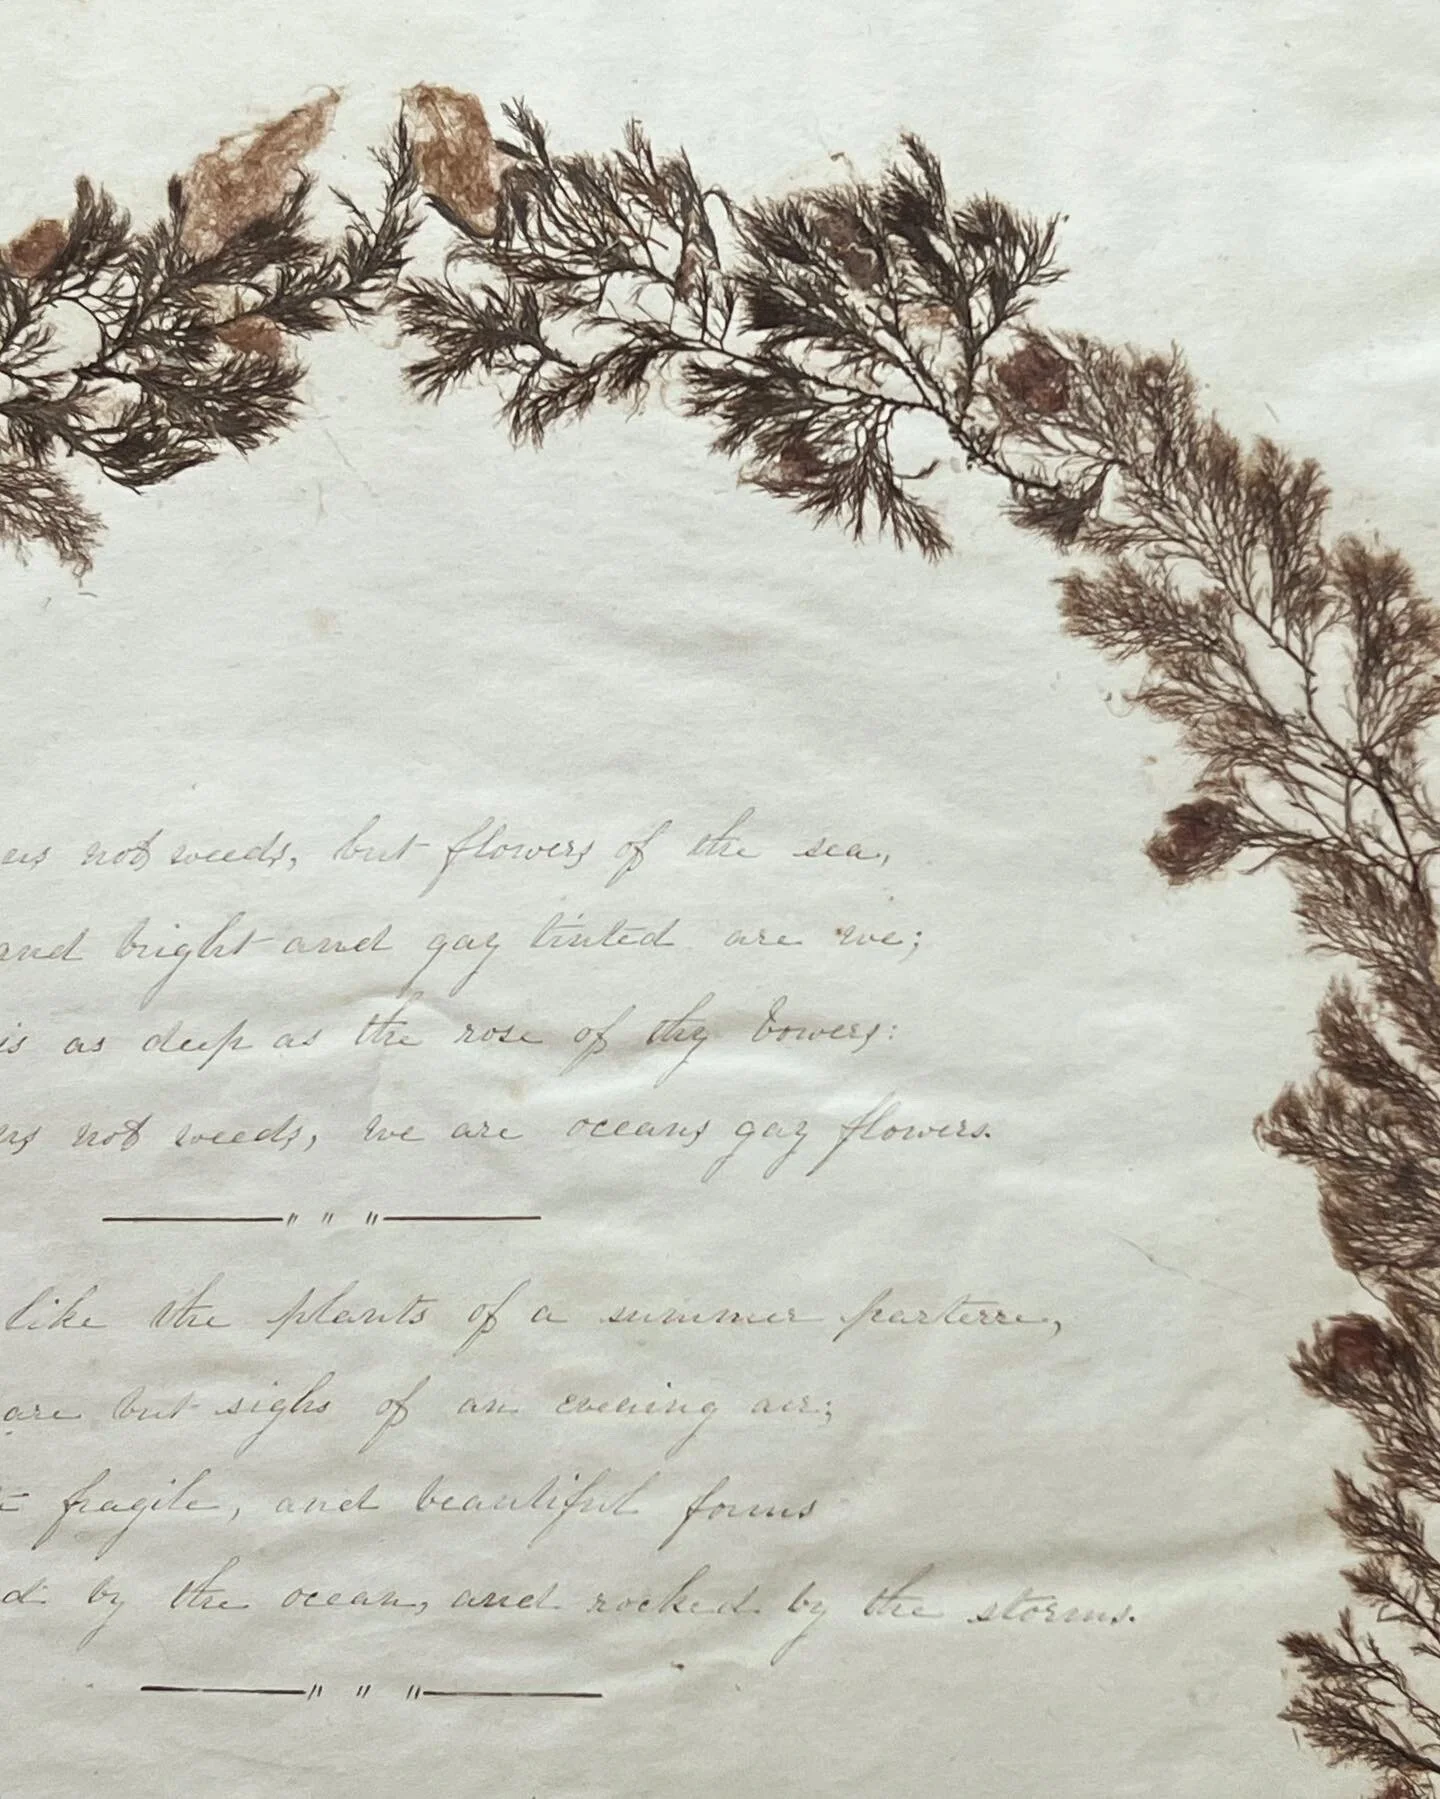 us not weeds, but flowers of the sea,
and bright and gay tinted are we;
is as deep as the rose of thy bowers:
us not weeds, we are oceans gay flowers.
like the plants of a summer parterre,
are but sighs of an evening air;
fragile, and beautiful forms
by the ocean, and rocked by the storms.